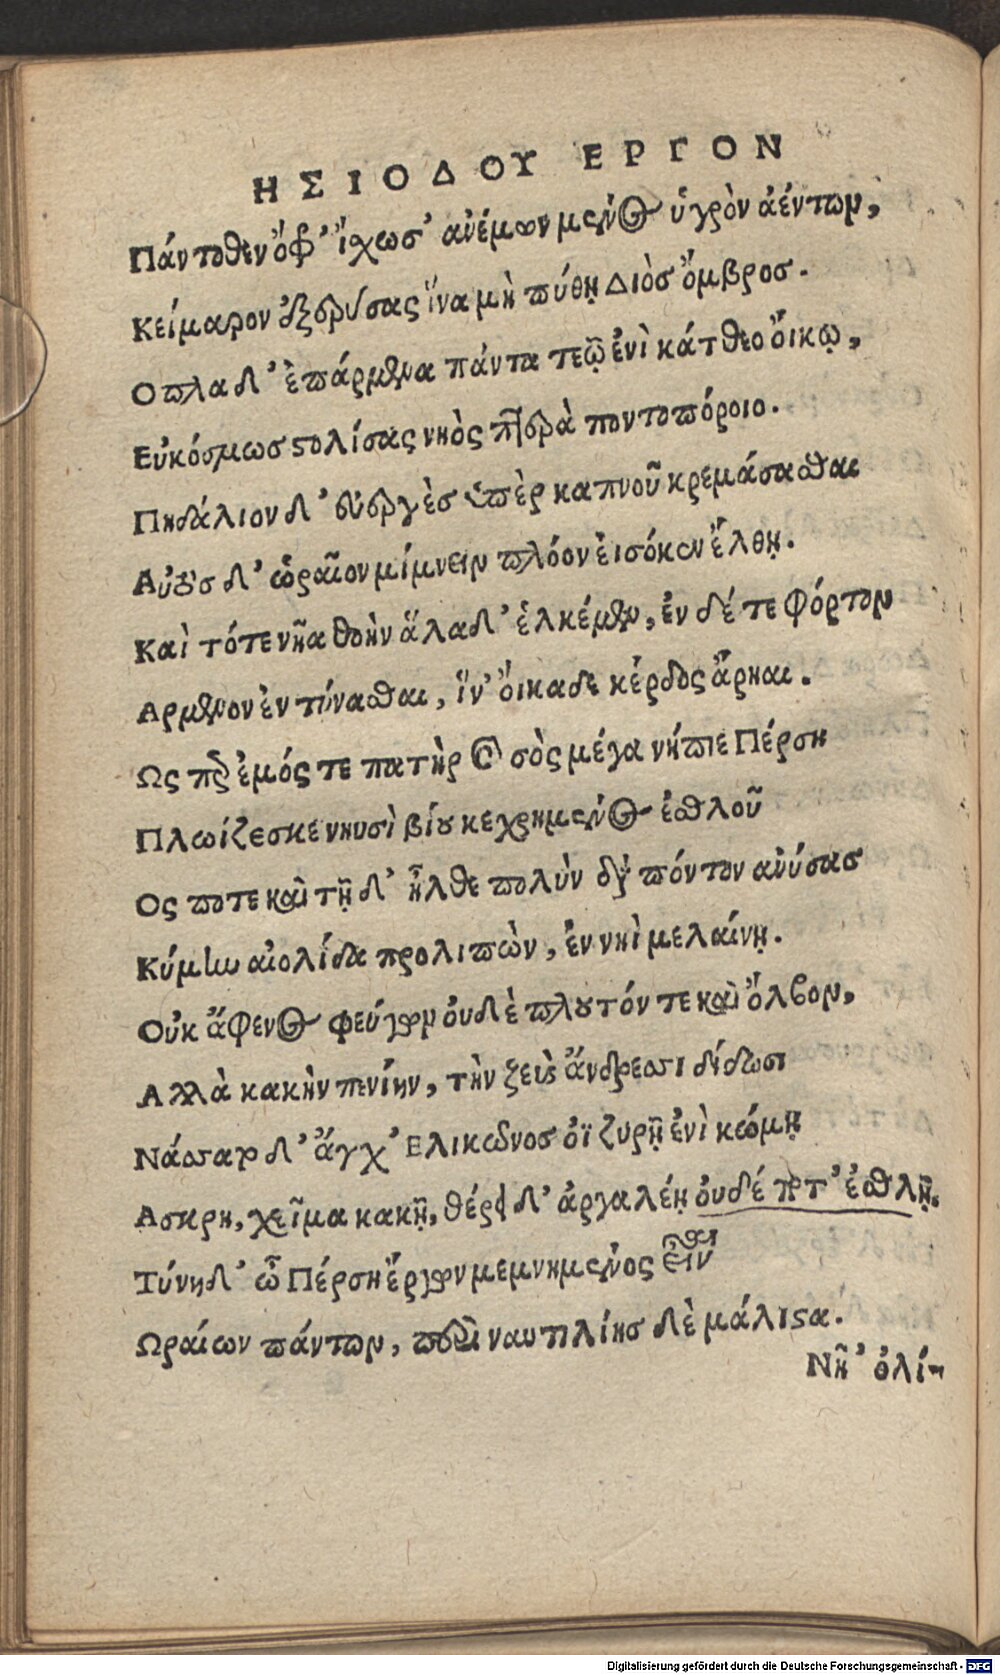 ΗΣΙΟΔΟΥ ΕΡΓΟΝ
Πάντοθεν ὄφρ' ἴχωσ' ἀνέμων μένος ὑγρὸν ἀέντων,
Κείμαρον ἐξερύσας ἵνα μὴ πύθῃ Διὸσ ὄμβροσ.
Οπλα δ' ἐπάρμενα πάντα τεῷ ἐνὶ κάτθεο ὄικῳ,
Εὐκόσμωσ στολίσας νηὸς πτερὰ ποντοπόροιο.
Πηδάλιον δ' εὐεργὲσ ὑπὲρ καπνοῦ κρεμάσασθαι
Αὐτὸσ δ' ὡραῖον μίμνειν πλόον ἐισόκεν ἔλθῃ.
Καὶ τότε νῆα θοὴν ἅλαδ' ἑλκέμεν, ἐν δέ τε φόρτον
Αρμενον ἐντύνασθαι, ἵν' ὄικαδε κέρδος ἄρηαι.
Ως περ ἐμός τε πατὴρ καὶ σὸς μέγα νήπιε Πέρση
Πλωίζεσκε νηυσὶ βίου κεχρημένος ἐσθλοῦ
Ος ποτε καὶ τῇ δ' ἦλθε πολὺν διὰ πόντον ἀνύσασ
Κύμην αἰολίδα προλιπὼν, ἐν νηὶ μελαίνῃ.
Οὐκ ἄφενος φεύγων ὀυδὲ πλουτόν τε καὶ ὄλβον,
Αλλὰ κακὴν πενίην, τὴν ζεὺς ἄνδρεσσι δίδωσι
Νάσσατο δ' ἄγχ' Ελικῶνοσ ὀϊζυρῇ ἐνὶ κώμῃ
Ασκρη, χεῖμα κακῇ, θέρει δ' ἀργαλέῃ ὀυδέ ποτ' ἐσθλῇ.
Τύνη δ' ὦ Πέρση ἔργων μεμνημένος εἶναι
Ωραίων πάντων, περὶ ναυτιλίησ δὲ μάλιστα.
Νῆ' ὀλί-
Digitalisierung gefördert durch die Deutsche Forschungsgemeinschaft - DFG